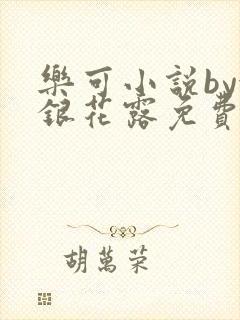 樂可小説by
銀花露免費
胡萬荣